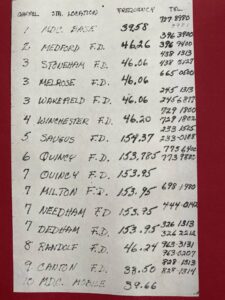 CHANNEL STA. LOCATION FREQUENCY TEL.
1 MDC. BASE 39.58 727 8980
2 MEDFORD F.D. 46.26 396 9400
3 STONEHAM F.D. 46.06 438 1313
3 MELROSE F.D. 46.06 665 0500
3 WAKEFIELD F.D. 46.06 245 1313
4 WINCHESTER F.D. 46.20 729 1802
5 SAUGUS F.D. 154.37 233
6 QUINCY F.D. 153.785 773 9880
7 QUINCY F.D. 153.95
7 MILTON F.D. 153.95 698 1900
7 NEEDHAM F.D 153.95 444 0142
7 DEDHAM F.D. 153.95 326 1313
326 2212
8 RANDOLF F.D. 46.24 963-3131
963-0207
9 CANTON F.D. 38.50 828-1313
828-1314
10 MDC. MOBILE 39.66